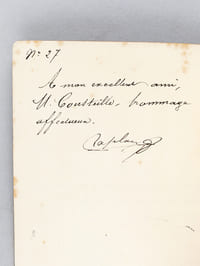 No 27
A mon excellent ami,
M. Coustille, hommage
affectueux.